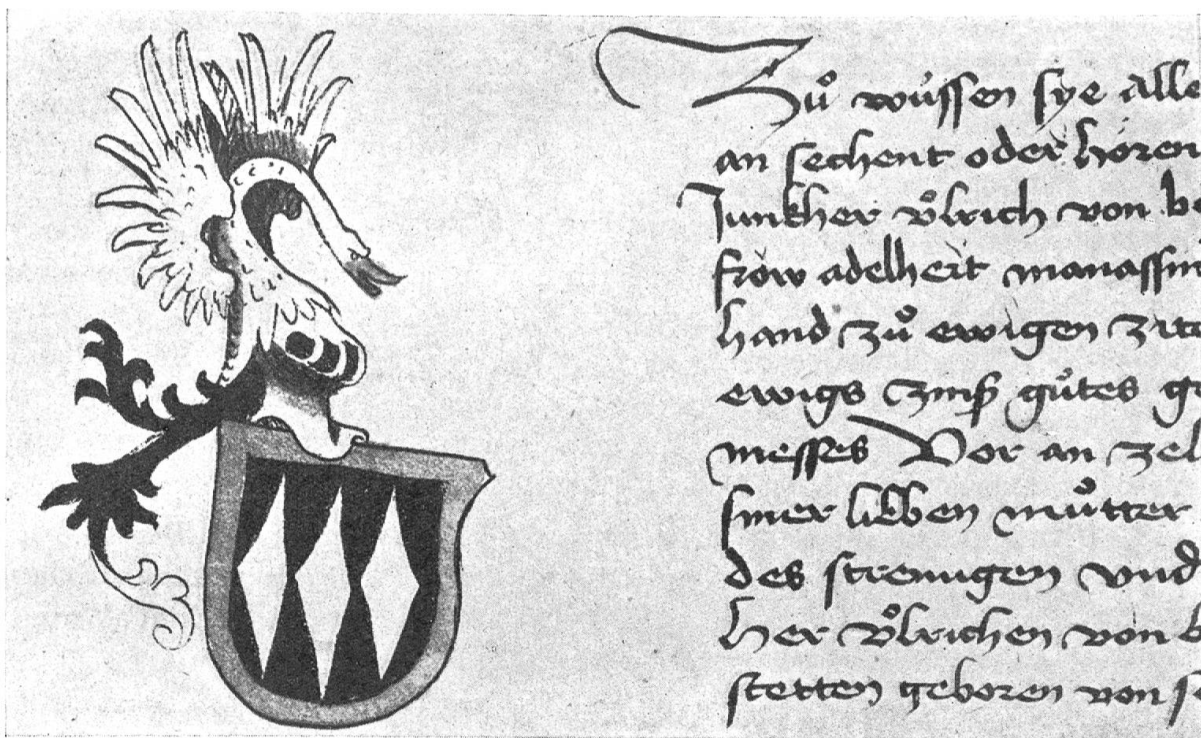 Zů wüssen sye alle
an sechent oder hören
Junkher Vͦlrich von b
frow adelheit manassin
hand zů ewigen zite
ewigs zinß gůtes ge
messes Vor an zel
siner lieben můtter
des strengen vnd
her vͦlrichen von b
stetten geboren von s